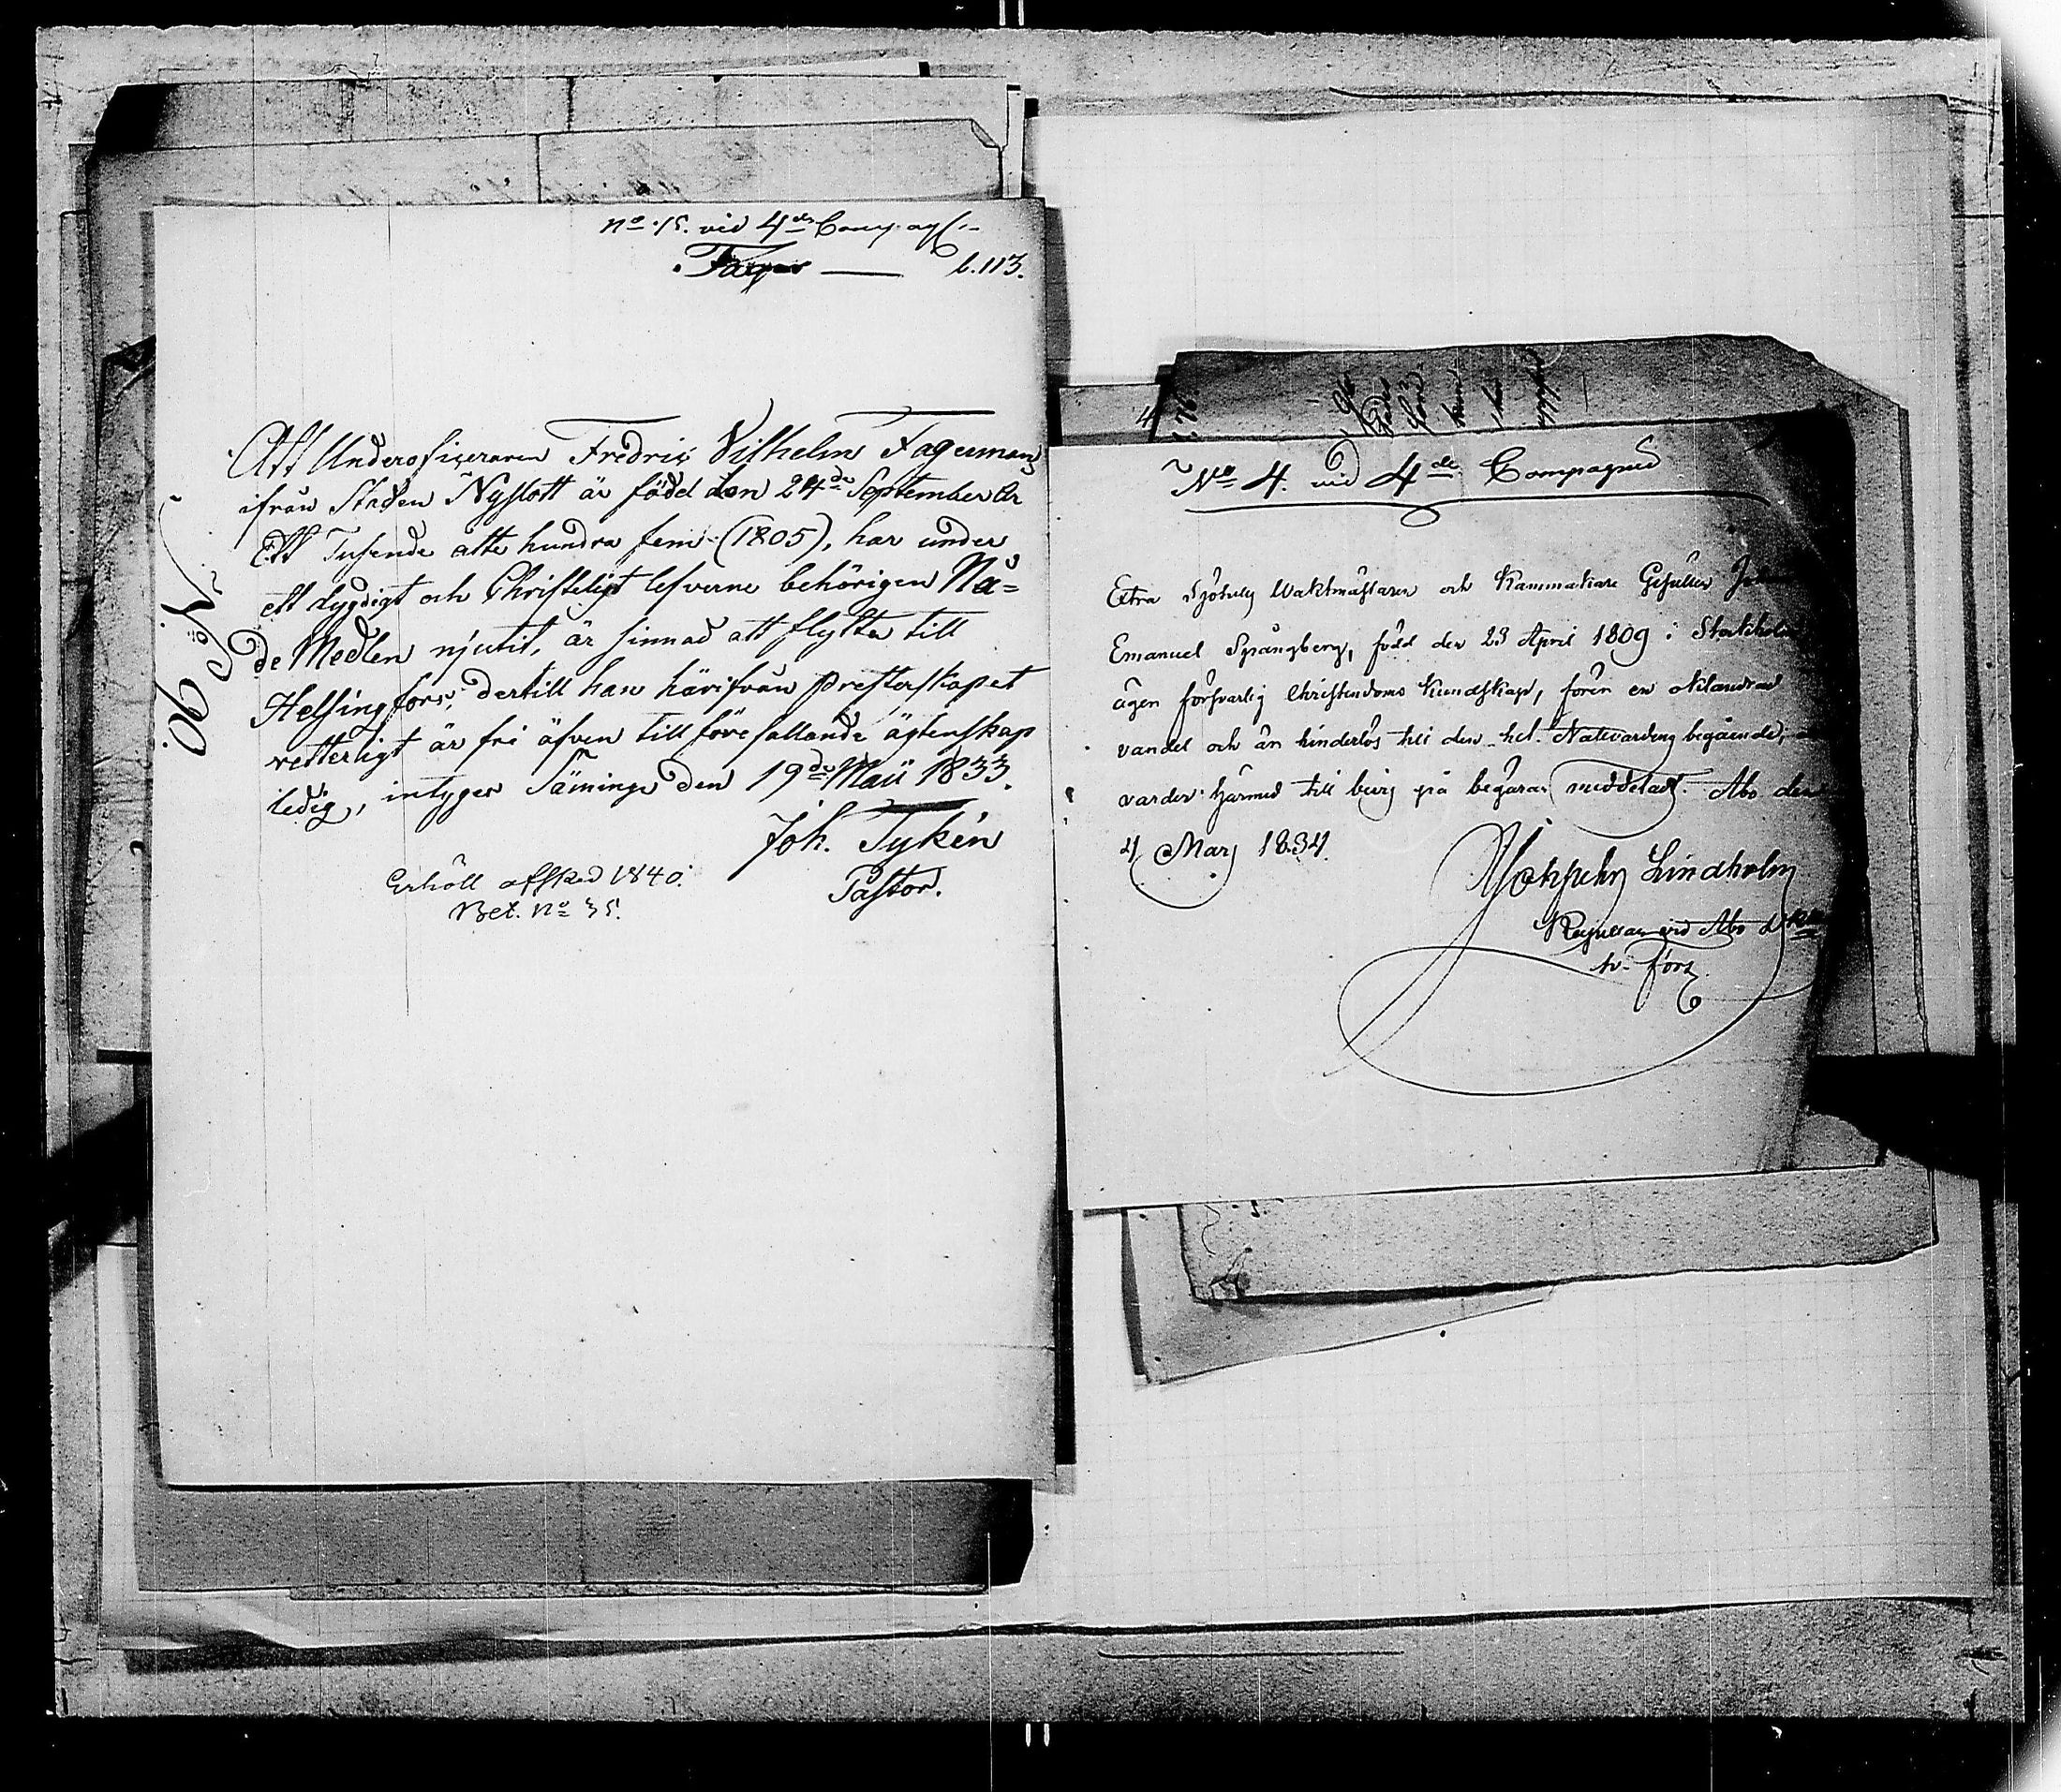 No 15. vid 4de Compagn
Fager — b. 113.
No 90.
Att Underoficeraren Fredric Vilhelm Fagerman,
ifrån Staden Nyslott är född den 24de September År
Ett Tusende åtte hundra fem (1805), har under
ett dygdigt och Christeligt lefverne behörigen Nå=
de Medlen njutit, är sinnad att flytta till
Helsingfors; dertill han härifrån presterskapet
retterligt är fri äfven till förefallande ägtenskap
ledig, intyges Säminge den 19de Maii 1833.
Joh. Tykén
Pastor.
Erhöll afsked 1840.
Bet. No 35.
No 4. vid 4de Compagnie
Extra Sjötull Waktmästaren och Kammakare Gesällen
Emanuel Spångberg, född den 23 April 1809 i Stockholm
äger försvarlig Christendoms Kundskap, förer en oklandrad
vandel och är hinderlös till den hel. Nattvardens begående,
varder härmed till bevis på begäran meddelat. Åbo den
4 Marj 1834.
Lindholm
vid Åbo
h. förs.